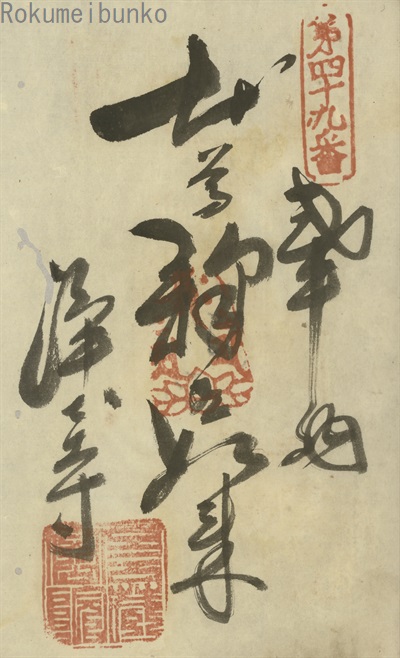 Rokumeibunko
第四十九番
奉納
本尊釈迦如来
浄土寺